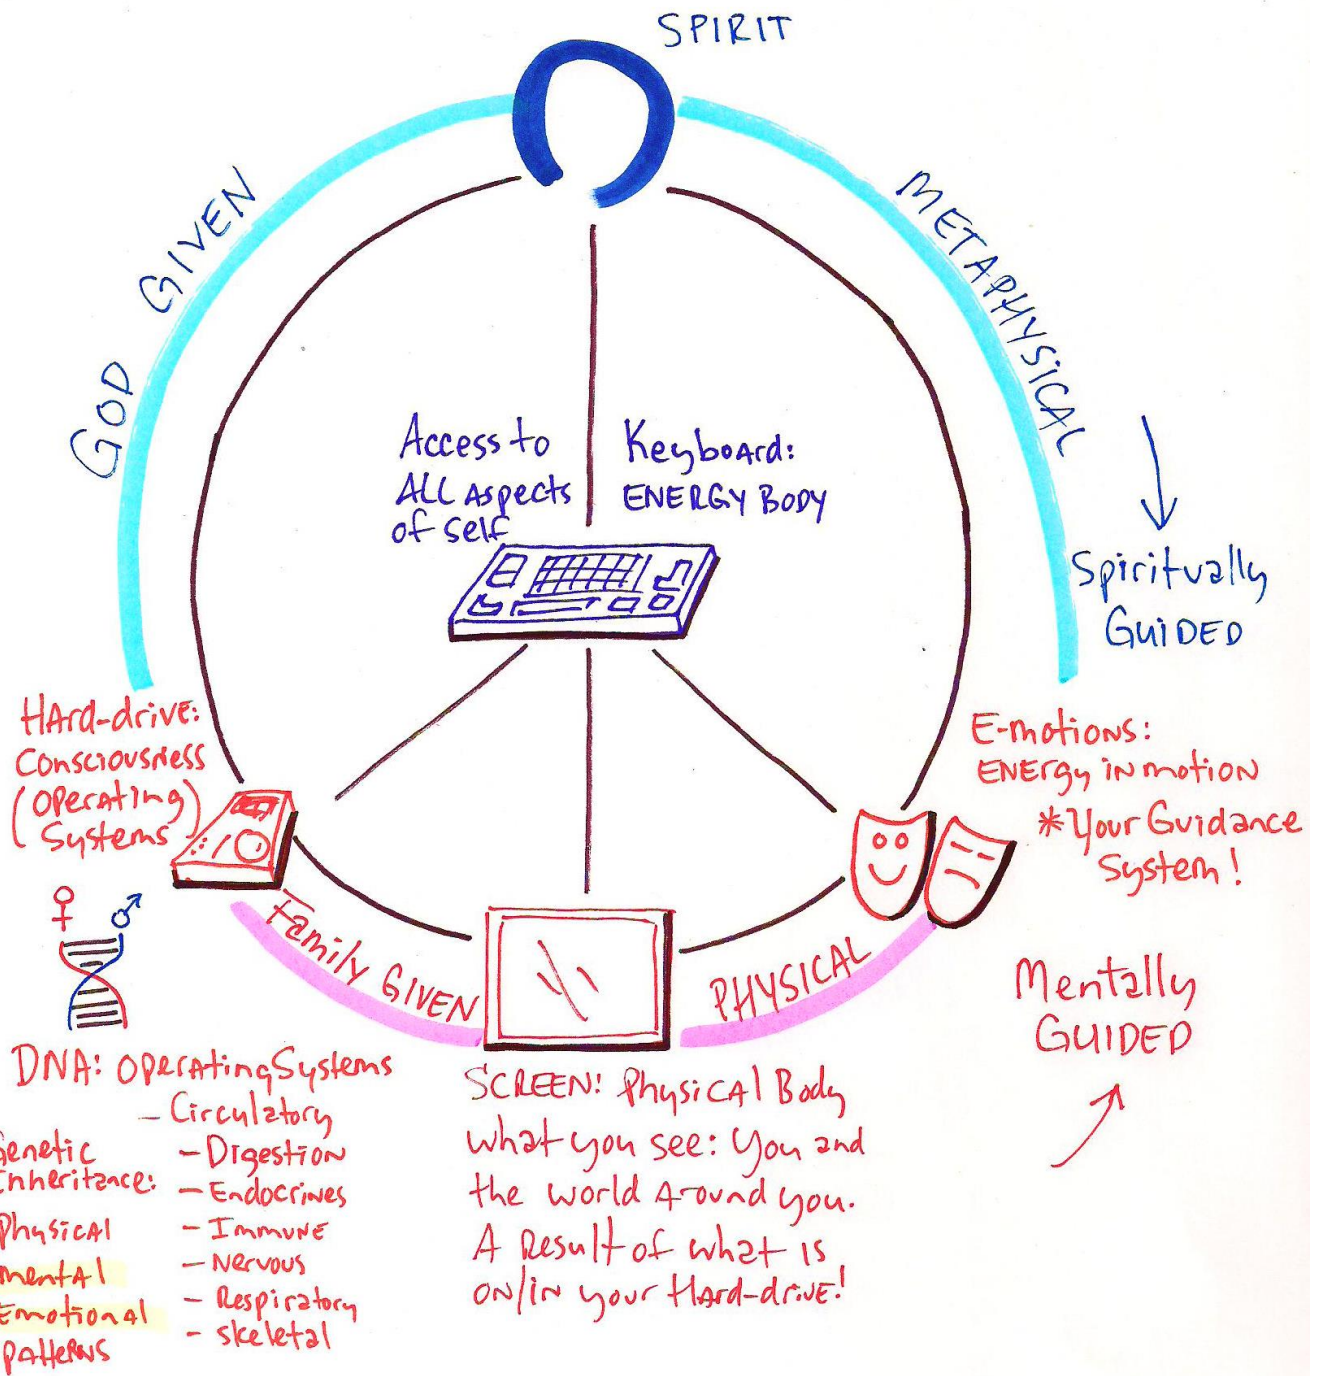 SPIRIT
GOD GIVEN
METAPHYSICAL
Access to
ALL Aspects
of Self
Keyboard:
ENERGY BODY
Spiritually
GUIDED
HArd-drive:
Consciousness
(Operating
Systems)
E-motions:
ENERgy iN motion
*Your Guidance
System!
Family GIVEN
PHYSICAL
Mentally
GUIDED
DNA: OperAting Systems
- Circulatory
- Digestion
- Endocrines
- Immune
- Nervous
- Respiratory
- skeletal
Genetic
Inheritance:
Physical
mentAl
Emotional
pAtterns
SCREEN: PhysicAl Body
what you see: You and
the world Around you.
A Result of what is
ON/IN your HArd-drive!